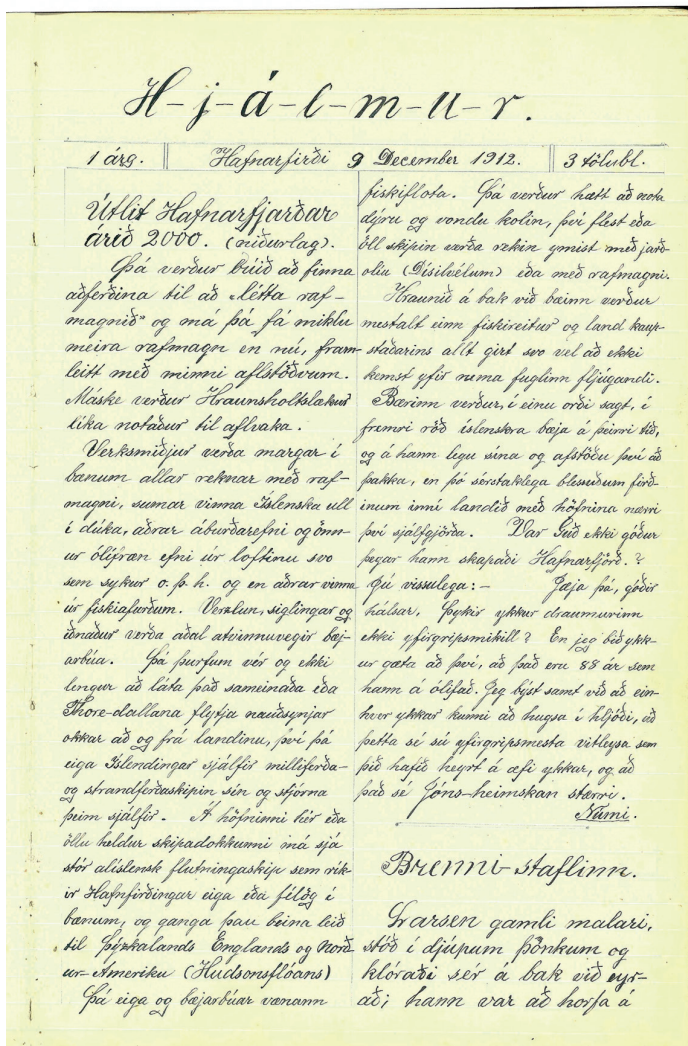 H-j-á-l-m-u-r.
1 árg. Hafnarfirði 9 December 1912. 3 tölubl.
Útlit Hafnarfjarðar
árið 2000. (niðurlag).
Þá verður búið að finna
aðferðina til að "létta raf-
magnið" og má þá fá miklu
meira rafmagn en nú, fram-
leitt með minni aflstöðvum.
Máske verður Hraunsholtslækur
líka notaður til aflvaka.
Verksmiðjur verða margar í
bænum allar reknar með raf-
magni, sumar vinna íslenska ull
í dúka, aðrar áburðarefni og önn-
ur ólífræn efni úr loftinu svo
sem sykur o.þ.h. og en aðrar vinna
úr fiskiafurðum. Verzlun, siglingar og
iðnaður verða aðal atvinnuvegir bæj-
arbúa. Þá þurfum vér og ekki
lengur að láta það sameinaða eða
Thore-dallana flytja nauðsynjar
okkar að og frá landinu, því þá
eiga Íslendingar sjálfir milliferða-
og strandferðaskipin sín og stjórna
þeim sjálfir. Á höfninni hér eða
öllu heldur skipadokkunni má sjá
stór alíslensk flutningaskip sem rík-
ir Hafnfirðingar eiga eða félög í
bænum, og ganga þau beina leið
til Þýzkalands Englands og Norð
ur-Ameríku (Hudsonsflóans)
Þá eiga og bæjarbúar vænann
fiskiflota. Þá verður hætt að nota
dýru og vondu kolin, því flest eða
öll skipin verða rekin ýmist með jarð-
olíu (Dísilvélum) eða með rafmagni.
Hraunið á bak við bæinn verður
mestalt einn fiskireitur og land kaup-
staðarins allt girt svo vel að ekki
kemst yfir nema fuglinn fljúgandi.
Bærinn verður, í einu orði sagt, í
fremri röð íslenskra bæja á þeirri tíð,
og á hann legu sína og afstöðu því að
þakka, en þó sérstaklega blessuðum firð-
inum inní landið með höfnina nærri
því sjálfgjörða. Var Guð ekki góður
þegar hann skapaði Hafnarfjörð.?
Jú vissulega:- Jæja þá, góðir
hálsar, Þykir ykkur draumurinn
ekki yfirgripsmikill? En jeg bið ykk-
ur gæta að því, að það eru 88 ár sem
hann á ólifað. Jeg býst samt við að ein-
hver ykkar kunni að hugsa í hljóði, að
þetta sé sú yfirgripsmesta vitleysa sem
þið hafið heyrt á æfi ykkar, og að
það sé Jóns-heimskan stærri.
Námi.
Brenni-staflinn.
Larsen gamli malari,
stóð í djúpum þönkum og
klóraði sér á bak við eyr-
að; hann var að horfa á